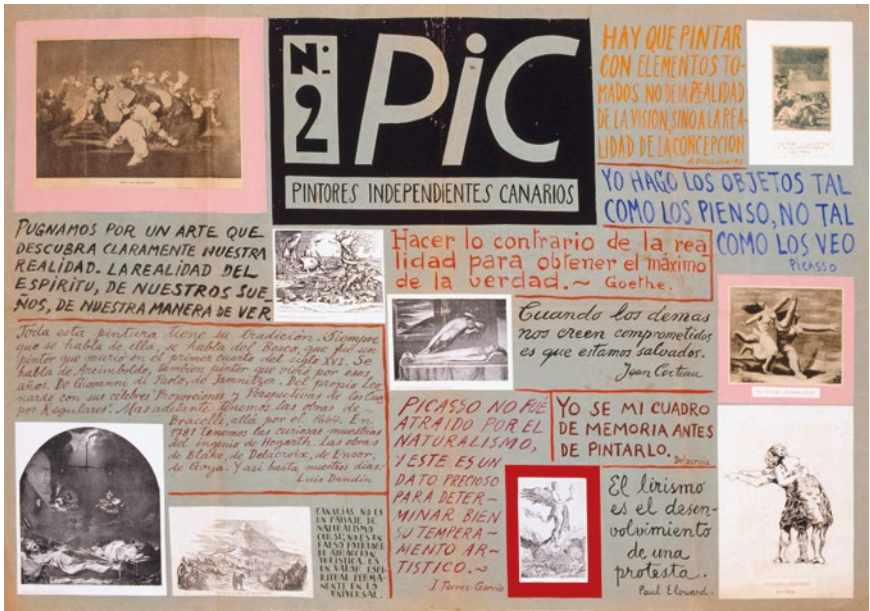 N.º 2
PiC
PINTORES INDEPENDIENTES CANARIOS
HAY QUE PINTAR
CON ELEMENTOS TO-
MADOS NO DE LA REALIDAD
DE LA VISION, SINO A LA REA-
LIDAD DE LA CONCEPCION
APOLLINAIRE
YO HAGO LOS OBJETOS TAL
COMO LOS PIENSO, NO TAL
COMO LOS VEO
PICASSO
PUGNAMOS POR UN ARTE QUE
DESCUBRA CLARAMENTE NUESTRA
REALIDAD. LA REALIDAD DEL
ESPIRITU, DE NUESTROS SUE-
ÑOS, DE NUESTRA MANERA DE VER
Hacer lo contrario de la rea
lidad para obtener el máximo
de la verdad. ~ Goethe.
Cuando los demas
nos creen comprometidos
es que estamos salvados.
Jean Cocteau
Toda esta pintura tiene su tradición. Siempre
que se habla de ella, se habla del Bosco, que fué un
pintor que murió en el primer cuarto del siglo XVI. Se
habla de Arcimboldo, tambien pintor que vivió por esos
años. De Giovanni di Paolo, de Jamnitzer. Del propio Leo
nardo con sus célebres "Proporciones y Perspectivas de los Cuer
pos Regulares". Mas adelante tenemos las obras de
Bracelle, alla por el 1624. En
1781 tenemos las curiosas muestras
del ingenio de Hogarth. Las obras
de Blake, de Delacroix, de Ensor,
de Goya. Y asi hasta nuestros dias.
Luis Dandin
PICASSO NO FUÉ
ATRAIDO POR EL
NATURALISMO,
Y ESTE ES UN
DATO PRECIOSO
PARA DETER-
MINAR BIEN
SU TEMPERA-
MENTO AR-
TISTICO. ~
J. Torres-García
YO SE MI CUADRO
DE MEMORIA ANTES
DE PINTARLO.
Delacroix
El lirismo
es el desen-
volvimiento
de una
protesta.
Paul Elouard.
CANARIAS NO ES
UN PAISAJE DE
NATURALISMO
CURSI; NO ES UN
FALSO FOLKLORE
DE ATRACCION
TURISTICA. ES
UN VALOR ESPI-
RITUAL PERMA-
NENTE EN LO
UNIVERSAL.